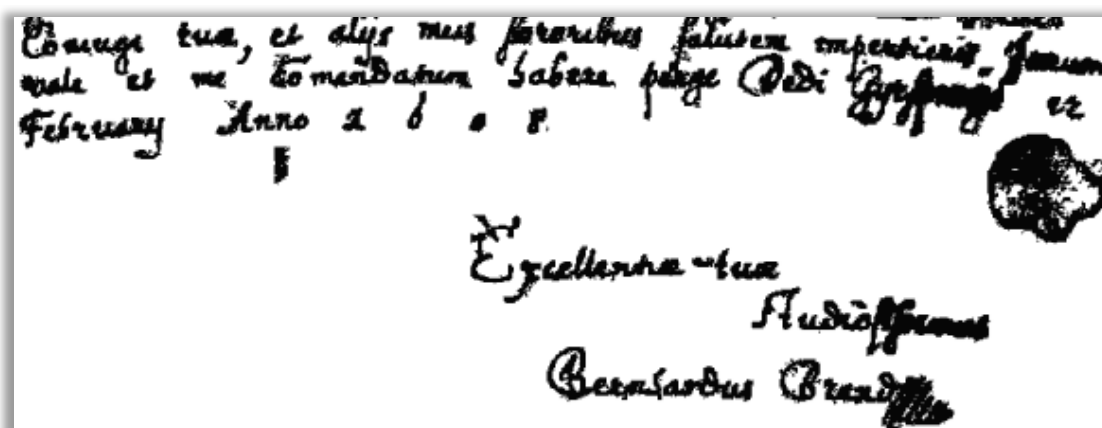 Coniugi tuæ, et alijs meis sororibus salutem impertieris
vale et me Comendatum habere perge Dedi
February Anno 1 6 0 8
Excellentiæ tuæ
Studiosissimus
Bernhardus Brand